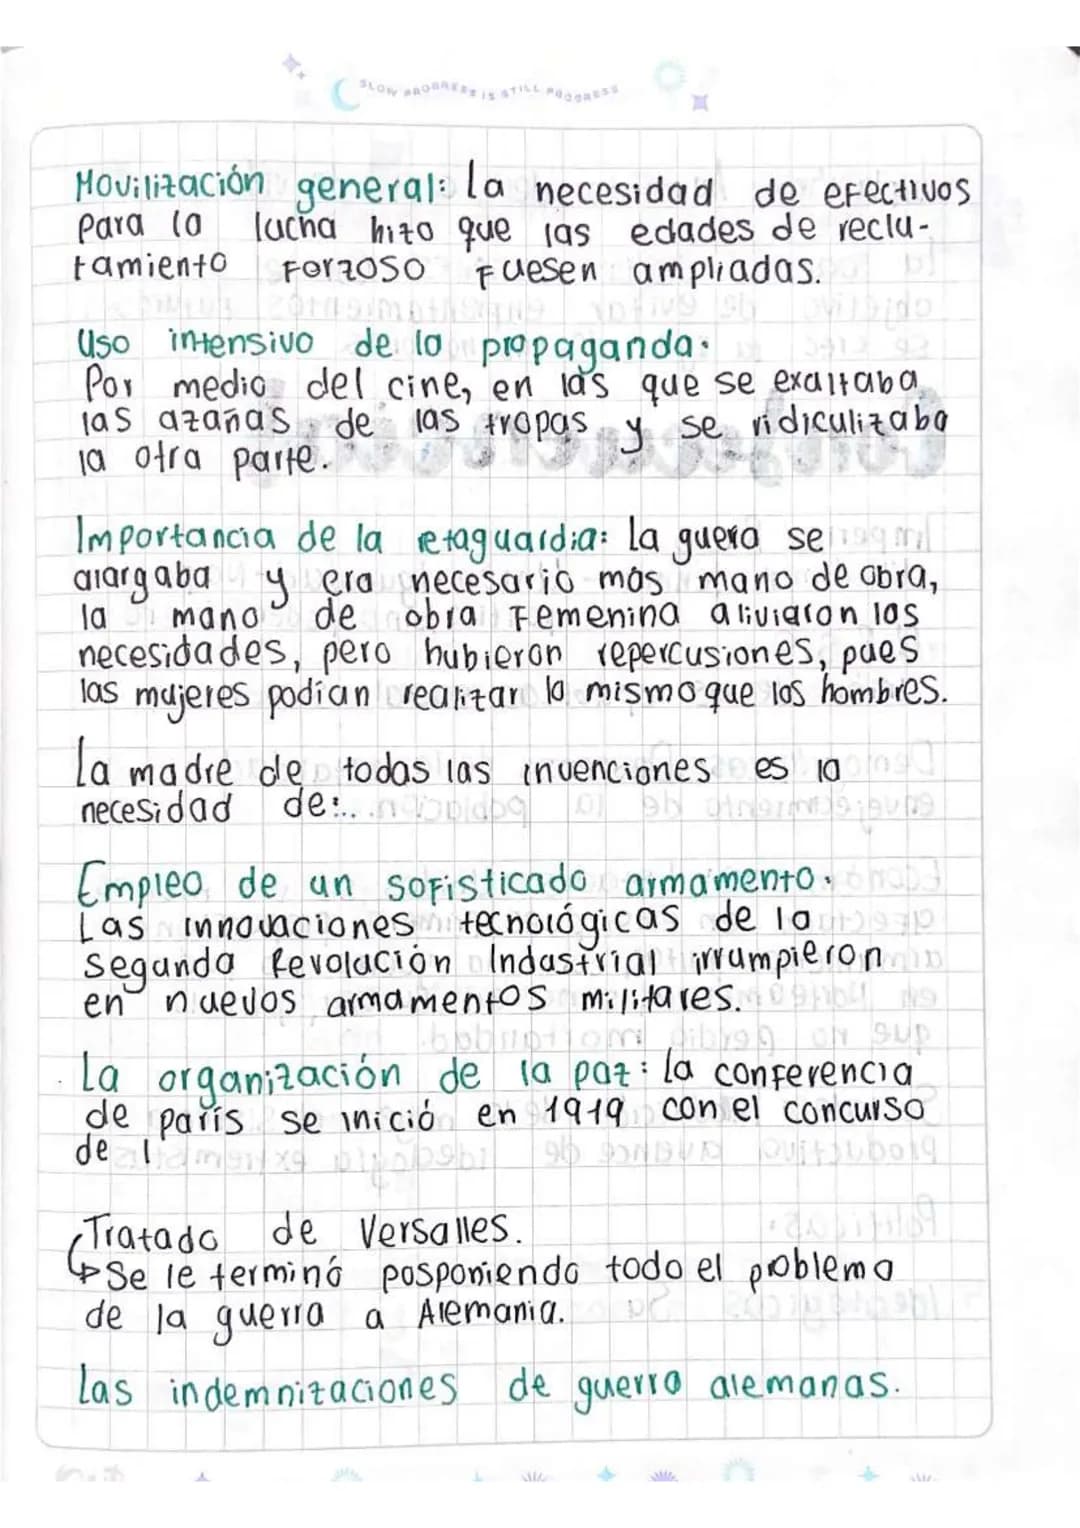 SLOW PROGRESS IS STILL PROGRESS
Movilización general: La necesidad de efectivos
para la lucha hizo que las edades de reclu-
tamiento forzoso fuesen ampliadas.
Uso intensivo de la propaganda.
Por medio del cine, en las que se exaltaba
las azañas de las tropas y se ridiculizaba
la otra parte.
Importancia de la retaguardia: La guera se
alargaba y era necesario más mano de obra,
la mano de obra femenina aliviaron las
necesidades, pero hubieron repercusiones, pues
las mujeres podían realizar lo mismo que los hombres.
La madre de todas las invenciones es la
necesidad de:..
Empleo de un sofisticado armamento.
Las innovaciones tecnológicas de la
Segunda Revolación Industrial irrumpieron
en nuevos armamentos militares.
La organización de la paz: La conferencia
de parís se inició en 1919 con el concurso
de l
Tratado de Versalles.
↳ Se le terminó posponiendo todo el problema
de la guerra a Alemania.
Las indemnizaciones de guerra alemanas.